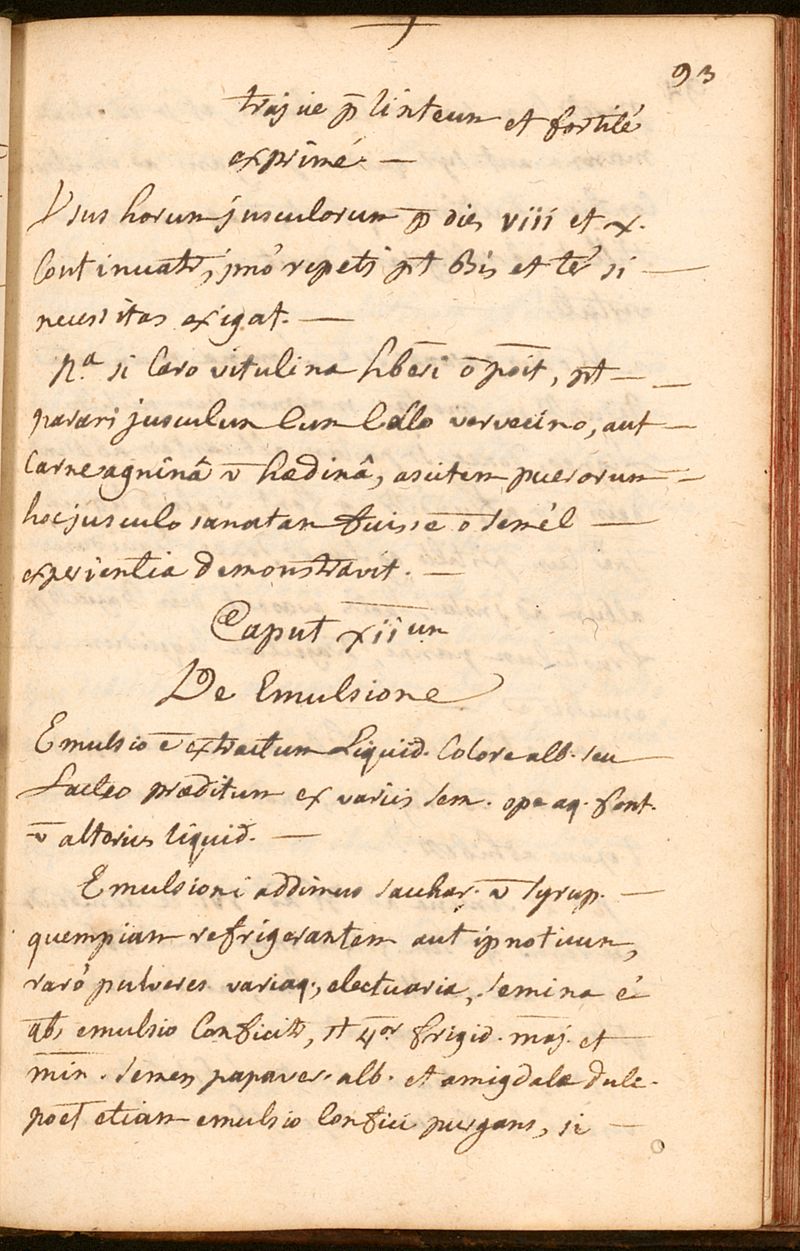 93
trajice p̄ linteum et fortitē
exprimé —
Usus horum jusculorum p̄ dies viii et x.
Continuatr, imò repeti pt Bis et tér si —
necessitas exigat. —
Na. si Caro vitulina hberi ō poit, pt —
parari jusculum Cum Collo vervecino, aut —
Carne agninâ v̄ hædinâ, ascitem puerorum —
hoc jusculo sanatam fuisse ō semél —
experientia demonstravit. —
Caput xiium
De Emulsione
Emulsio ē extractum Liquid. Colore alb. seu —
Lacteo præditum ex variis sem. ope aq. font.
v̄ alterius liquid. —
Emulsioni addimus sacchar. v̄ syrup. —
quempiam refrigerantem aut ipnoticum,
rarò pulveres variaq., electuaria, semina é
qbs emulsio Conficitr, st 4or frigid. maj. et
min. semen papaver. alb. et amigdalæ dulc.
poēt etiam emulsio Confici purgans, si —